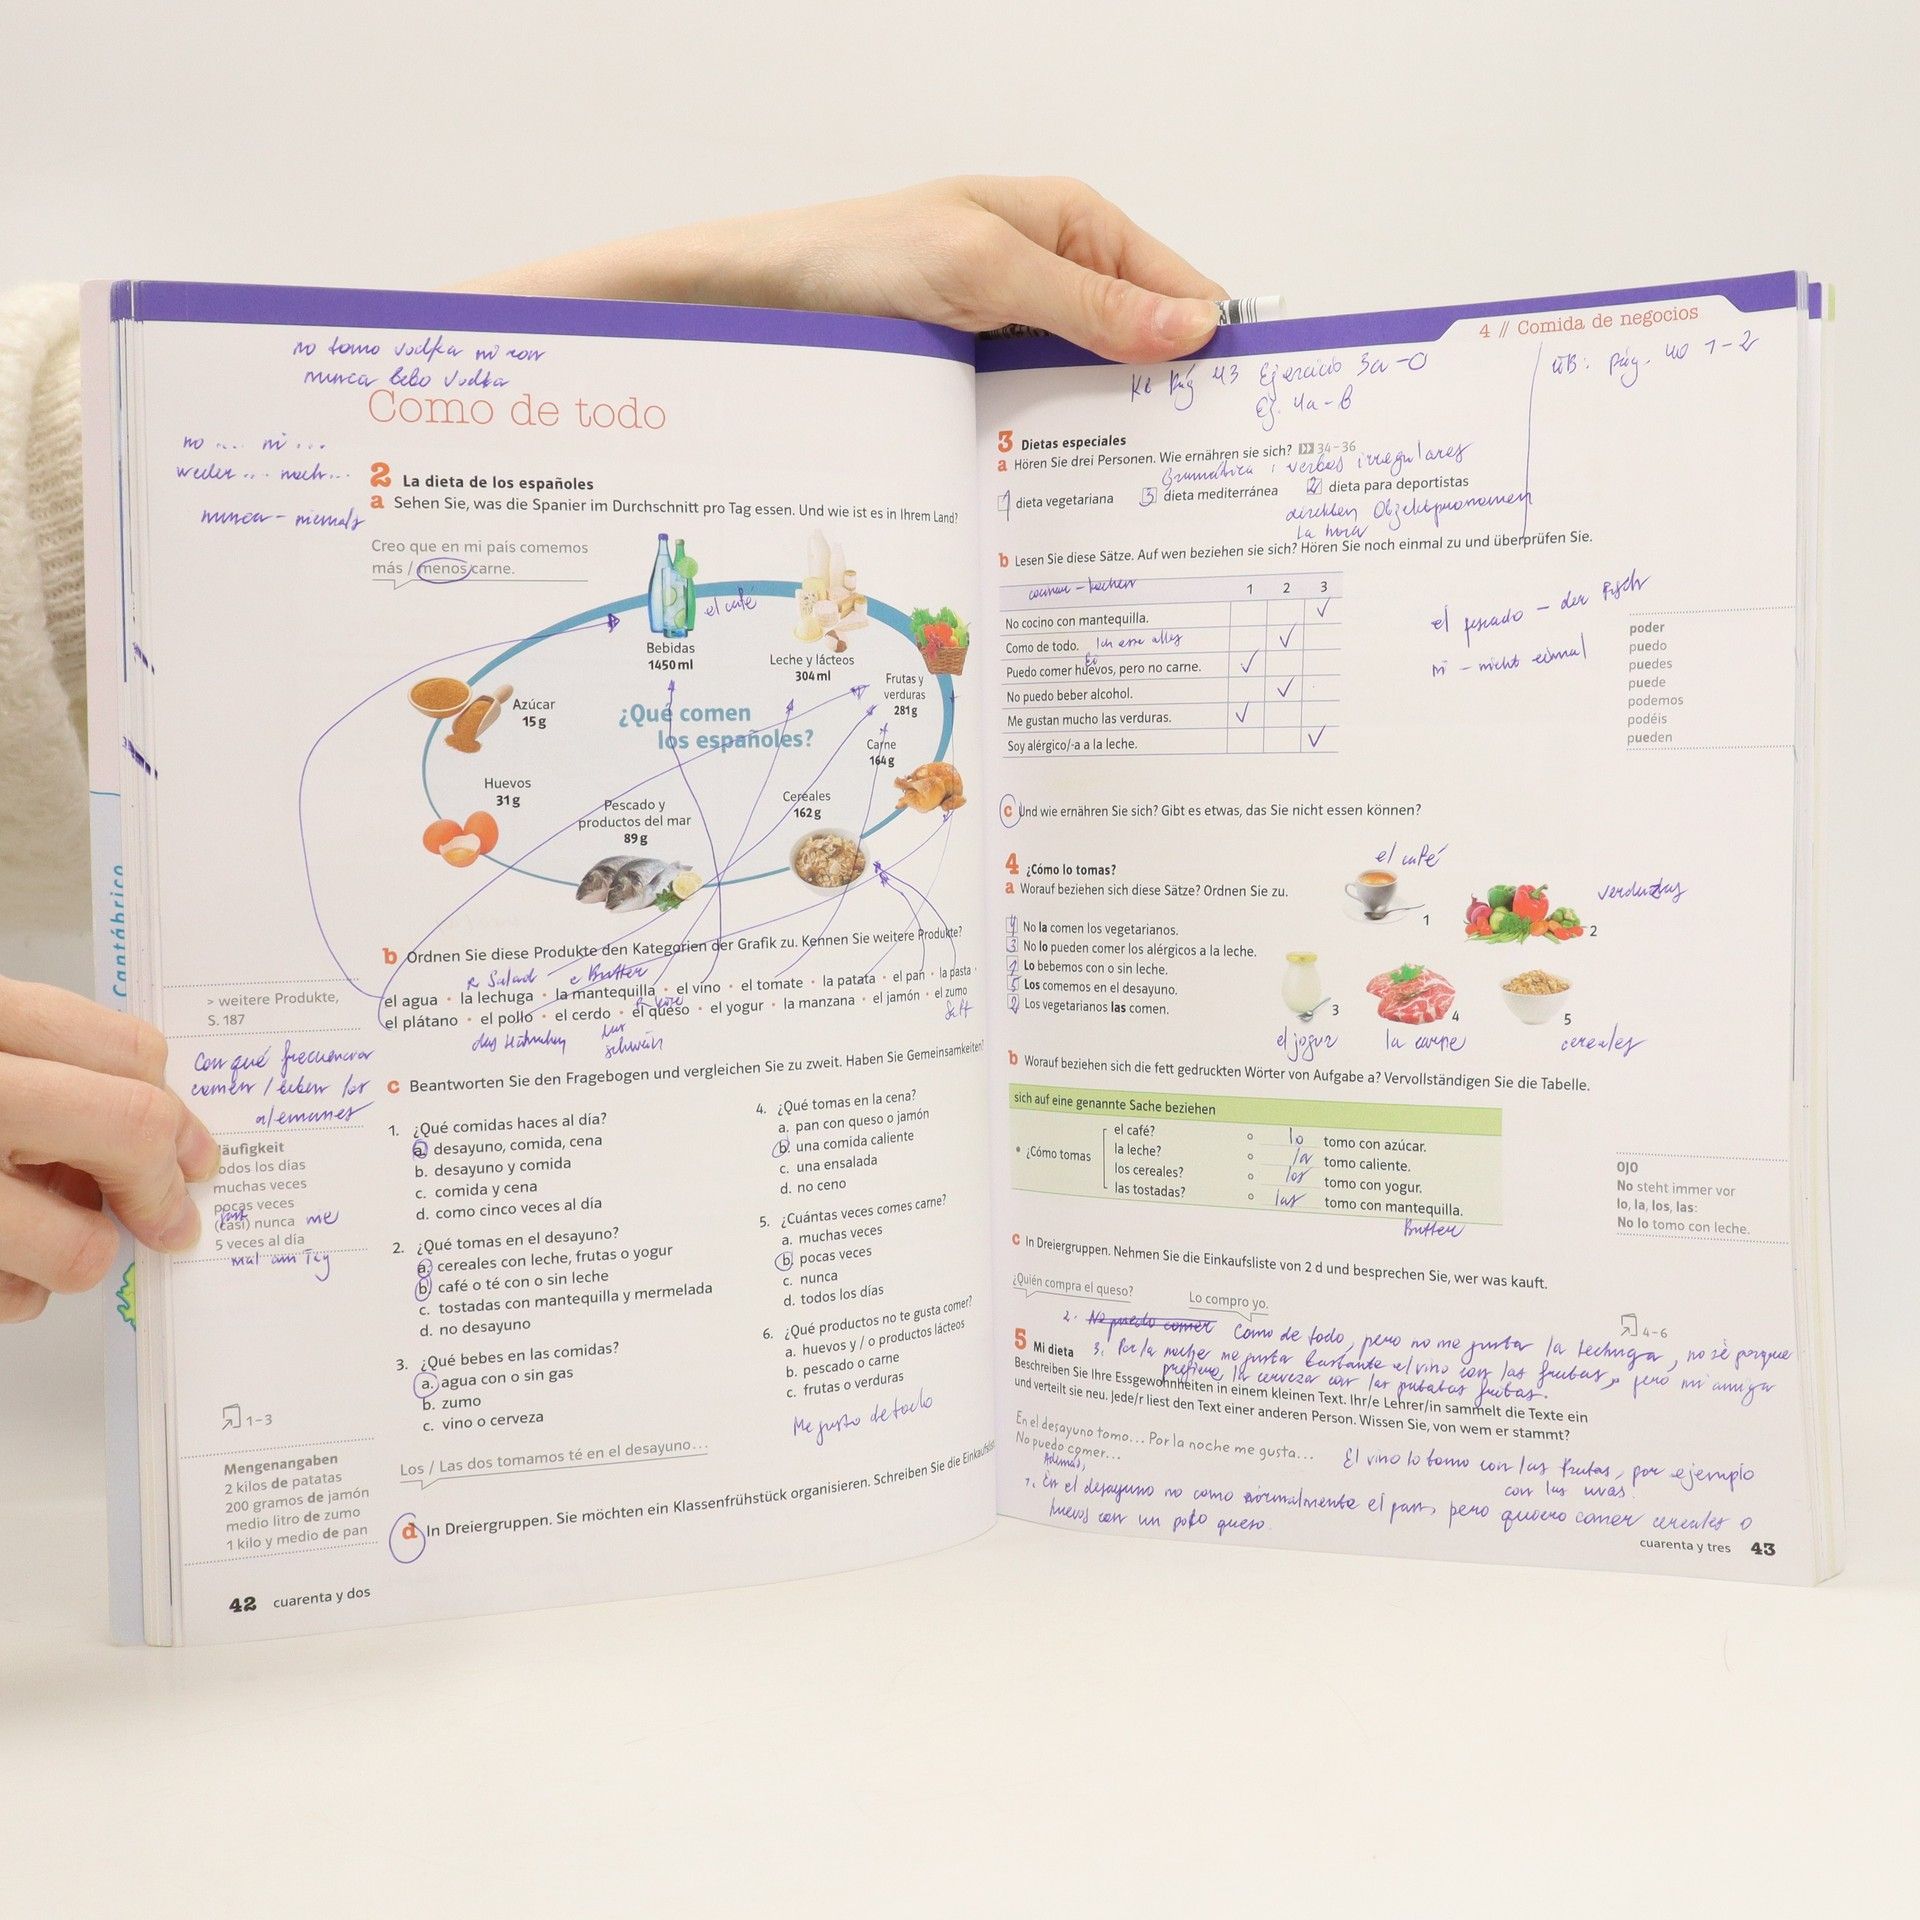 no tomo vodka ni ron
nunca bebo Vodka
Como de todo
no ... ni ...
weder ... noch ...
nunca - niemals
2 La dieta de los españoles
a Sehen Sie, was die Spanier im Durchschnitt pro Tag essen. Und wie ist es in Ihrem Land?
Creo que en mi país comemos
más / menos carne.
el café
Bebidas
1450 ml
Leche y lácteos
304 ml
Frutas y
verduras
281 g
Carne
164 g
Cereales
162 g
Pescado y
productos del mar
89 g
Huevos
31 g
Azúcar
15 g
¿Qué comen
los españoles?
b Ordnen Sie diese Produkte den Kategorien der Grafik zu. Kennen Sie weitere Produkte?
r Salad e Butter
el agua • la lechuga • la mantequilla • el vino • el tomate • la patata • el pan • la pasta •
el plátano • el pollo • el cerdo • el queso • el yogur • la manzana • el jamón • el zumo
Saft
das Hähnchen
schwein
> weitere Produkte,
S. 187
Con qué frecuencia
comen / beben los
alemanes
c Beantworten Sie den Fragebogen und vergleichen Sie zu zweit. Haben Sie Gemeinsamkeiten?
1. ¿Qué comidas haces al día?
a. desayuno, comida, cena
b. desayuno y comida
c. comida y cena
d. como cinco veces al día
2. ¿Qué tomas en el desayuno?
a. cereales con leche, frutas o yogur
b. café o té con o sin leche
c. tostadas con mantequilla y mermelada
d. no desayuno
3. ¿Qué bebes en las comidas?
a. agua con o sin gas
b. zumo
c. vino o cerveza
4. ¿Qué tomas en la cena?
a. pan con queso o jamón
b. una comida caliente
c. una ensalada
d. no ceno
5. ¿Cuántas veces comes carne?
a. muchas veces
b. pocas veces
c. nunca
d. todos los días
6. ¿Qué productos no te gusta comer?
a. huevos y / o productos lácteos
b. pescado o carne
c. frutas o verduras
Me gusto de todo
Los / Las dos tomamos té en el desayuno...
d In Dreiergruppen. Sie möchten ein Klassenfrühstück organisieren. Schreiben Sie die
äufigkeit
odos los días
muchas veces
pocas veces
(casi) nunca
5 veces al día
mal am Tag
1–3
Mengenangaben
2 kilos de patatas
200 gramos de jamón
medio litro de zumo
1 kilo y medio de pan
42 cuarenta y dos
Cantábrico
4 // Comida de negocios
Pág 43 Ejercicio 3a -
Ej. 4a - b
ÜB: pág. 40 1-2
3 Dietas especiales
a Hören Sie drei Personen. Wie ernähren sie sich? 34–36
Gramática: verbos irregulares
1 dieta vegetariana 3 dieta mediterránea 2 dieta para deportistas
direkten Objektpronomen
La hora
b Lesen Sie diese Sätze. Auf wen beziehen sie sich? Hören Sie noch einmal zu und überprüfen Sie.
cocinar - kochen 1 2 3
No cocino con mantequilla. ✓
Como de todo. Ich esse alles ✓
Puedo comer huevos, pero no carne. ✓
No puedo beber alcohol. ✓
Me gustan mucho las verduras. ✓
Soy alérgico/-a a la leche. ✓
el pescado - der Fisch
ni - nicht einmal
poder
puedo
puedes
puede
podemos
podéis
pueden
c Und wie ernähren Sie sich? Gibt es etwas, das Sie nicht essen können?
4 ¿Cómo lo tomas?
a Worauf beziehen sich diese Sätze? Ordnen Sie zu.
4 No la comen los vegetarianos.
3 No lo pueden comer los alérgicos a la leche.
1 Lo bebemos con o sin leche.
5 Los comemos en el desayuno.
2 Los vegetarianos las comen.
el café
1
2
3
el jogur
4
la carne
5
cereales
b Worauf beziehen sich die fett gedruckten Wörter von Aufgabe a? Vervollständigen Sie die Tabelle.
sich auf eine genannte Sache beziehen
• ¿Cómo tomas
el café? o lo tomo con azúcar.
la leche? o la tomo caliente.
los cereales? o los tomo con yogur.
las tostadas? o las tomo con mantequilla.
Butter
OJO
No steht immer vor
lo, la, los, las:
No lo tomo con leche.
c In Dreiergruppen. Nehmen Sie die Einkaufsliste von 2 d und besprechen Sie, wer was kauft.
¿Quién compra el queso?
Lo compro yo.
4–6
2. No puedo comer Como de todo, pero no me gusta la lechuga, no sé porque
3. Por la noche me gusta bastante el vino con las frutas, pero mi amiga
prefiere la cerveza con las patatas fritas.
5 Mi dieta
Beschreiben Sie Ihre Essgewohnheiten in einem kleinen Text. Ihr/e Lehrer/in sammelt die Texte ein
und verteilt sie neu. Jede/r liest den Text einer anderen Person. Wissen Sie, von wem er stammt?
En el desayuno tomo... Por la noche me gusta...
No puedo comer...
El vino lo tomo con las frutas, por ejemplo
con las uvas.
Además,
1. En el desayuno no como normalmente el pan, pero quiero comer cereales o
huevos con un poco queso.
cuarenta y tres 43